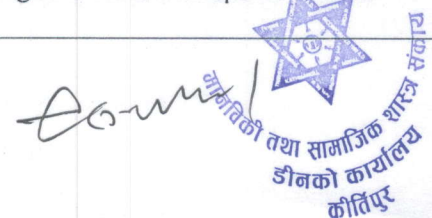 मानविकी तथा सामाजिक शास्त्र संकाय
डीनको कार्यालय
कीर्तिपुर